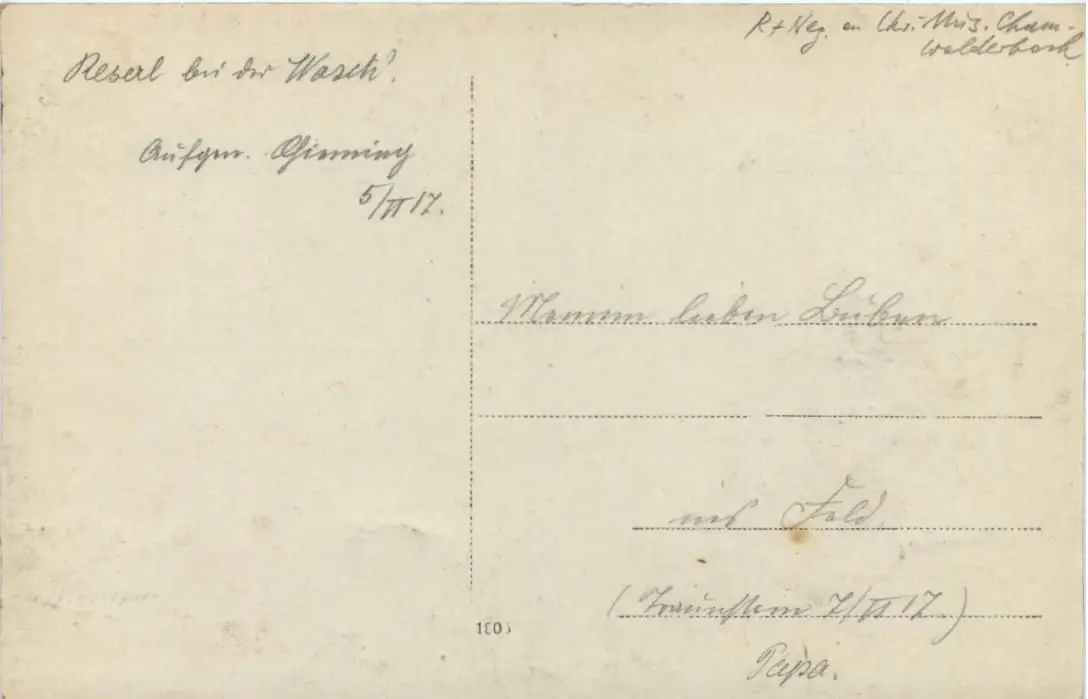 R + Neg. an Kr. Mus. Cham-
Walderbach
Reserl bei der Wasch'.
Aufgen. Chieming
5/VI 17.
Meinem lieben Buben
ins Feld
(Traunstein 7/VI 17)
Papa.